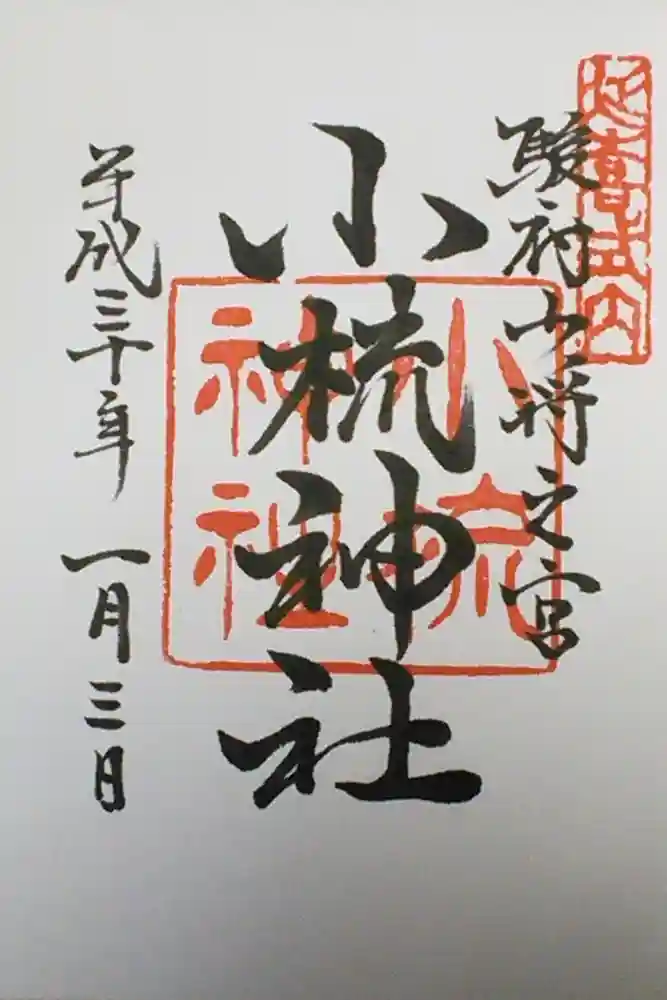 延喜式内
駿府少将之宮
小梳神社
小梳
神社
平成三十年 一月三日